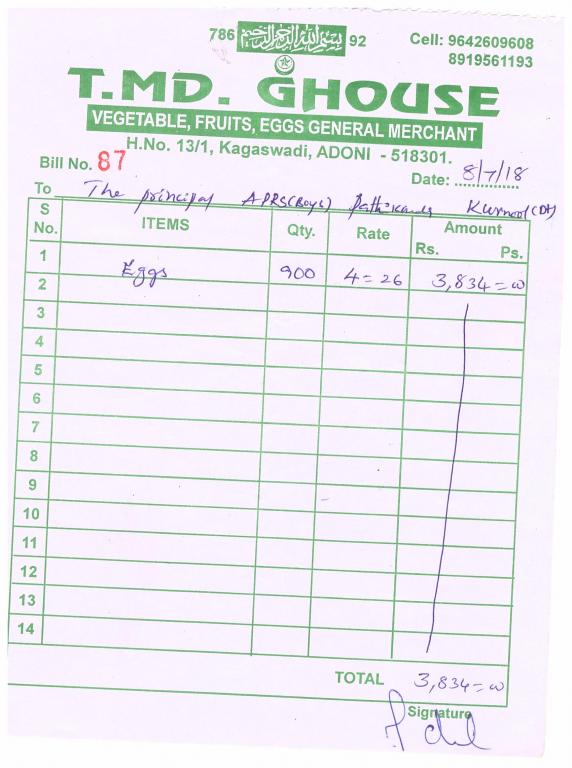 786 بسم الله الرحمن الرحيم 92
Cell: 9642609608
8919561193
T.MD. GHOUSE
VEGETABLE, FRUITS, EGGS GENERAL MERCHANT
H.No. 13/1, Kagaswadi, ADONI - 518301.
Bill No. 87
Date: 8/7/18
To The principal APRS(Boys) Kurnool(Dt)
S No. ITEMS Qty. Rate Amount
Rs. Ps.
1
Eggs 900 4=26 3,834=00
2
3
4
5
6
7
8
9
10
11
12
13
14
TOTAL 3,834=00
Signature